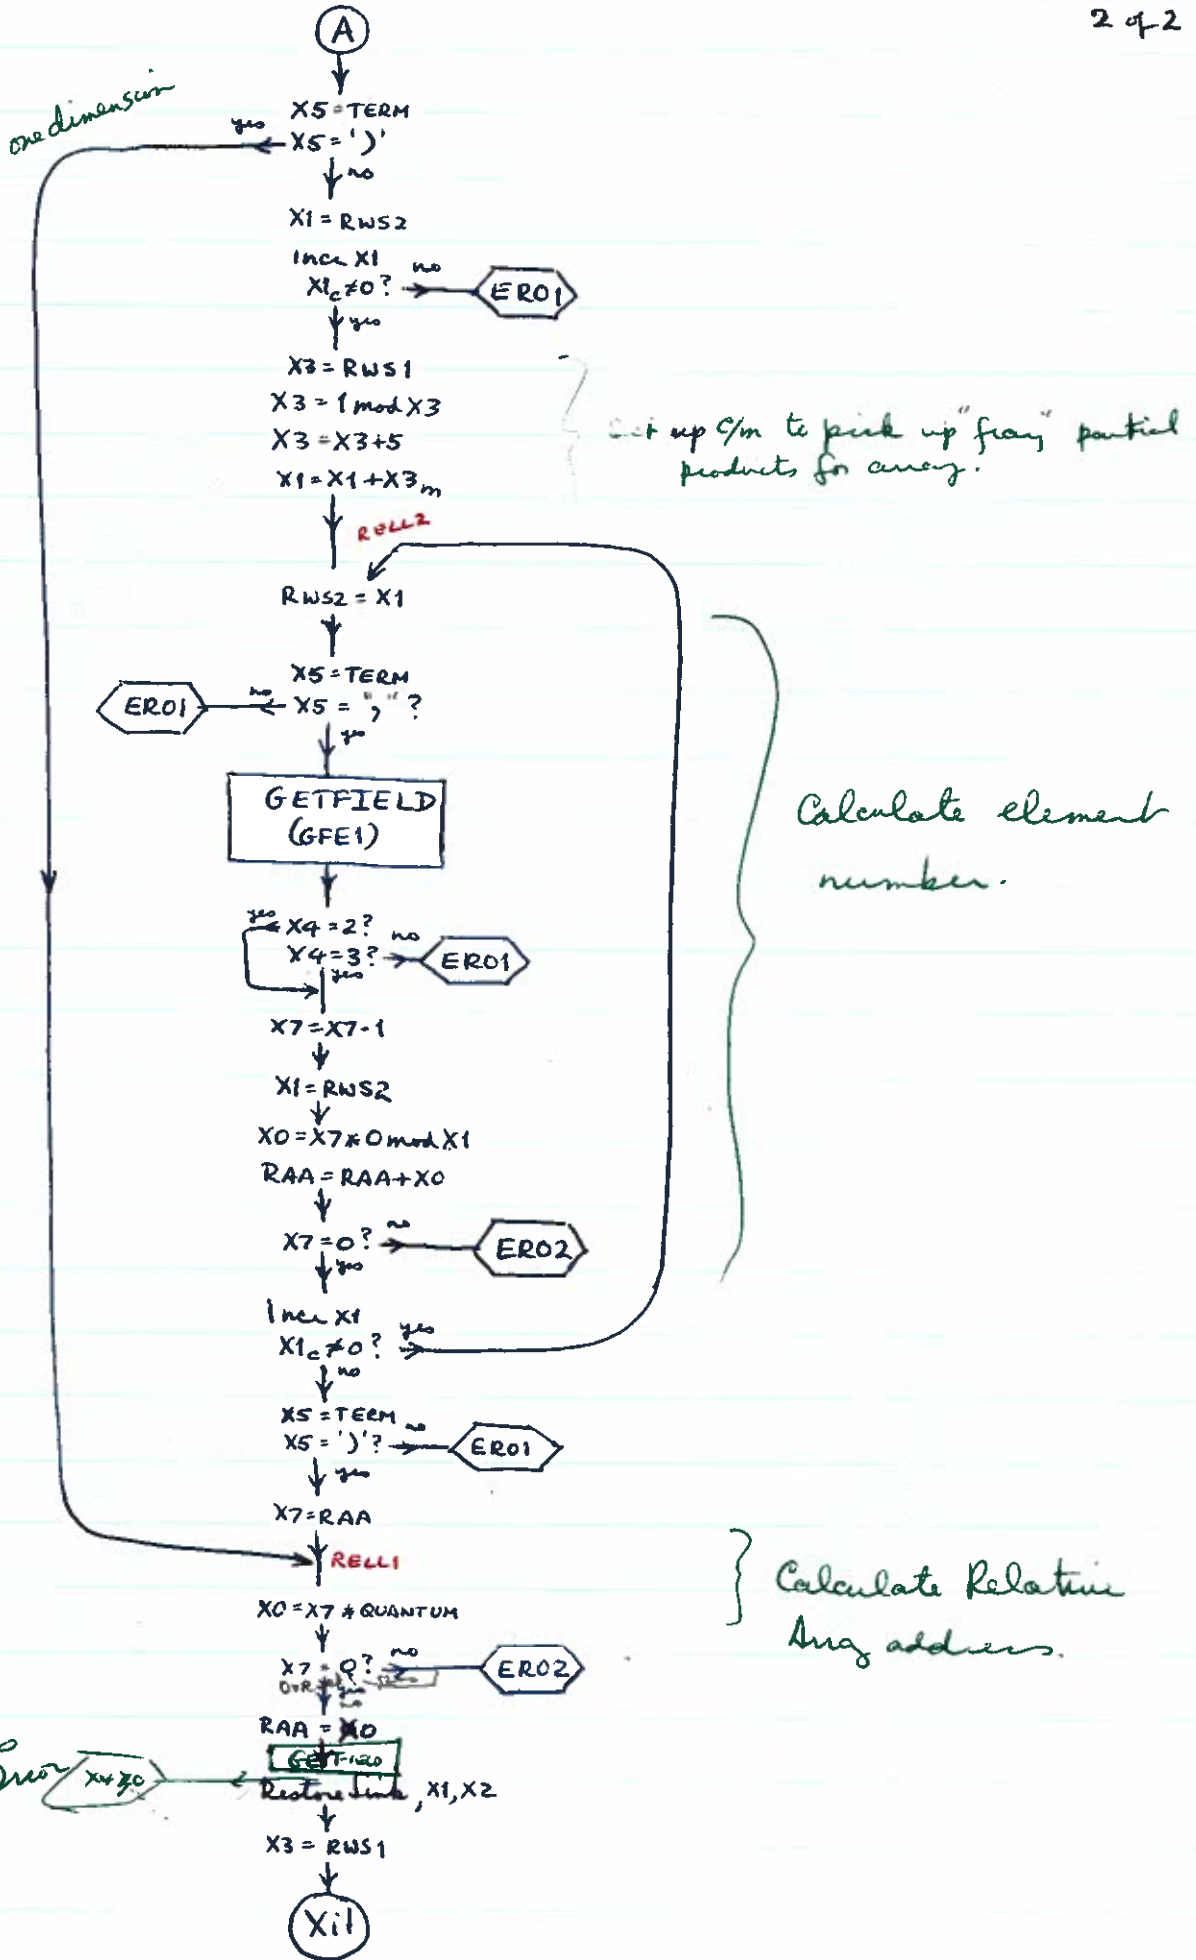 2 of 2
A
one dimension
X5 = TERM
yes
X5 = ')'
no
X1 = RWS2
Incr X1
X1c ≠ 0?
no
ER01
yes
X3 = RWS1
X3 = 1 mod X3
X3 = X3+5
X1 = X1 + X3m
up c/m to pick up partial
products for array.
RELL2
RWS2 = X1
X5 = TERM
X5 = "," ?
no
ER01
yes
GETFIELD
(GFE1)
Calculate element
number.
yes
X4 = 2?
X4 = 3?
no
ER01
yes
X7 = X7-1
X1 = RWS2
X0 = X7 * 0 mod X1
RAA = RAA + X0
X7 = 0?
no
ER02
yes
Incr X1
X1c ≠ 0?
yes
no
X5 = TERM
X5 = ')'?
no
ER01
yes
X7 = RAA
RELL1
Calculate Relative
Array address.
X0 = X7 * QUANTUM
X7 = 0?
no
ER02
yes
RAA = X0
GETFIELD
Error
X4≠0
Restore Link, X1, X2
X3 = RWS1
Xit